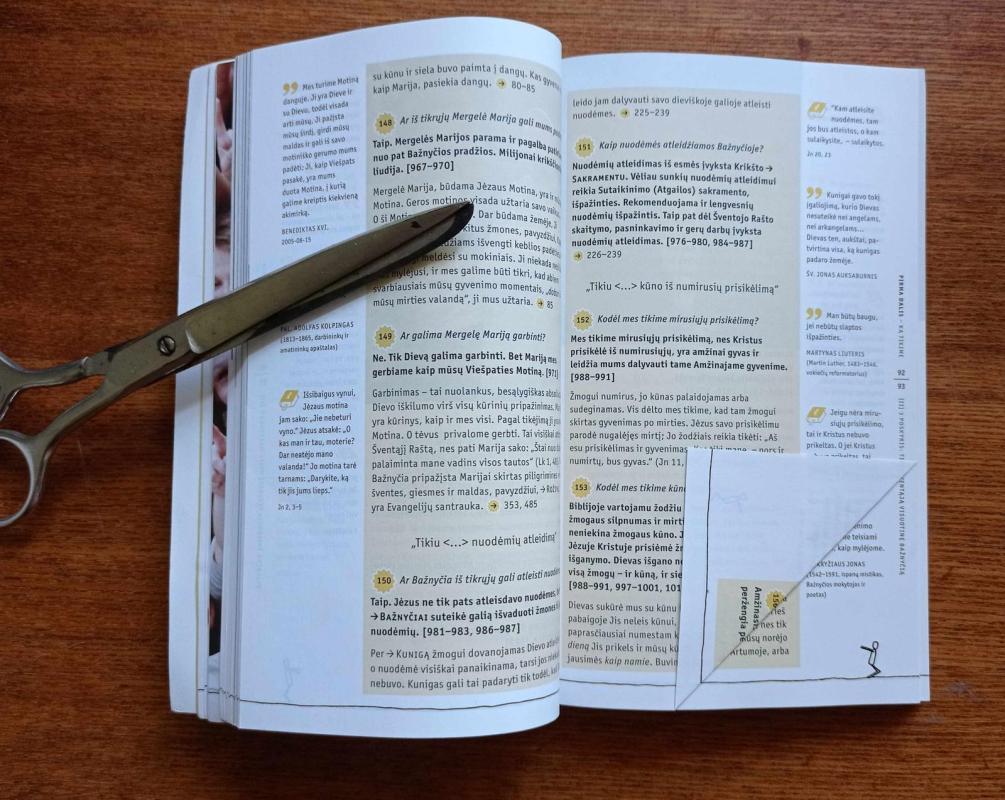 Mes turime Motiną
danguje. Ji yra Dieve ir
su Dievu, todėl visada
arti mūsų. Ji pažįsta
mūsų širdį, girdi mūsų
maldas ir gali iš savo
motiniško gerumo mums
padėti; Ji, kaip Viešpats
pasakė, yra mums
duota Motina, į kurią
galime kreiptis kiekvieną
akimirką.
BENEDIKTAS XVI,
2005-08-15
PAL. ADOLFAS KOLPINGAS
(1813–1865, darbininkų ir
amatininkų apaštalas)
Išsibaigus vynui,
Jėzaus motina
jam sako: „Jie nebeturi
vyno.“ Jėzus atsakė: „O
kas man ir tau, moterie?
Dar neatėjo mano
valanda!“ Jo motina tarė
tarnams: „Darykite, ką
tik jis jums lieps.“
Jn 2, 3–5
su kūnu ir siela buvo paimta į dangų. Kas
kaip Marija, pasiekia dangų. → 80–85
148 Ar iš tikrųjų Mergelė Marija gali mums
Taip. Mergelės Marijos parama ir pagalba
nuo pat Bažnyčios pradžios. Milijonai
liudija. [967–970]
Mergelė Marija, būdama Jėzaus Motina, yra ir
Motina. Geros motinos visada užtaria savo
O ši Dar būdama žemėje, Ji
kitus žmones, pavyzdžiui,
išvengti keblios
meldėsi su mokiniais. Ji niekada
mylėjusi, ir mes galime būti tikri, kad
svarbiausiais mūsų gyvenimo momentais,
mūsų mirties valandą“, ji mus užtaria. → 85
149 Ar galima Mergelę Mariją garbinti?
Ne. Tik Dievą galima garbinti. Bet Mariją mes
gerbiame kaip mūsų Viešpaties Motiną. [971]
Garbinimas – tai nuolankus, besąlygiškas
Dievo iškilumo virš visų kūrinių pripažinimas.
yra kūrinys, kaip ir mes visi. Pagal tikėjimą ji
Motina. O tėvus privalome gerbti. Tai visiškai
Šventąjį Raštą, nes pati Marija sako: „Štai
palaiminta mane vadins visos tautos“ (Lk 1,
Bažnyčia pripažįsta Marijai skirtas piligrimines
šventes, giesmes ir maldas, pavyzdžiui, →
yra Evangelijų santrauka. → 353, 485
„Tikiu <...> nuodėmių atleidimą“
150 Ar Bažnyčia iš tikrųjų gali atleisti
Taip. Jėzus ne tik pats atleisdavo nuodėmes,
→ BAŽNYČIAI suteikė galią išvaduoti žmones
nuodėmių. [981–983, 986–987]
Per → KUNIGĄ žmogui dovanojamas Dievo
o nuodėmė visiškai panaikinama, tarsi jos
nebuvo. Kunigas gali tai padaryti tik todėl,
leido jam dalyvauti savo dieviškoje galioje atleisti
nuodėmes. → 225–239
151 Kaip nuodėmės atleidžiamos Bažnyčioje?
Nuodėmių atleidimas iš esmės įvyksta Krikšto →
SAKRAMENTU. Vėliau sunkių nuodėmių atleidimui
reikia Sutaikinimo (Atgailos) sakramento,
išpažinties. Rekomenduojama ir lengvesnių
nuodėmių išpažintis. Taip pat dėl Šventojo Rašto
skaitymo, pasninkavimo ir gerų darbų įvyksta
nuodėmių atleidimas. [976–980, 984–987]
→ 226–239
„Tikiu <...> kūno iš numirusių prisikėlimą“
152 Kodėl mes tikime mirusiųjų prisikėlimą?
Mes tikime mirusiųjų prisikėlimą, nes Kristus
prisikėlė iš numirusiųjų, yra amžinai gyvas ir
leidžia mums dalyvauti tame Amžinajame gyvenime.
[988–991]
Žmogui numirus, jo kūnas palaidojamas arba
sudeginamas. Vis dėlto mes tikime, kad tam žmogui
skirtas gyvenimas po mirties. Jėzus savo prisikėlimu
parodė nugalėjęs mirtį; Jo žodžiais reikia tikėti: „Aš
esu prisikėlimas ir gyvenimas. Kas tiki mane – nors ir
numirtų, bus gyvas.“ (Jn 11,
153 Kodėl mes tikime
Biblijoje vartojamu žodžiu
žmogaus silpnumas ir
neniekina žmogaus kūno.
Jėzuje Kristuje prisiėmė
išganymo. Dievas išgano
visą žmogų – ir kūną, ir
[988–991, 997–1001,
Dievas sukūrė mus su kūnu
pabaigoje Jis neleis kūnui,
paprasčiausiai numestam
dieną Jis prikels ir mūsų
jausimės kaip namie.
„Kam atleisite
nuodėmes, tam
jos bus atleistos, o kam
sulaikysite, – sulaikytos.
Jn 20, 23
Kunigai gavo tokį
įgaliojimą, kurio Dievas
nesuteikė nei angelams,
nei arkangelams...
Dievas ten, aukštai, pa-
tvirtina visa, ką kunigas
padaro žemėje.
ŠV. JONAS AUKSABURNIS
Man būtų baugu,
jei nebūtų slaptos
išpažinties.
MARTYNAS LIUTERIS
(Martin Luther, 1483–1546,
vokiečių reformatorius)
Jeigu nėra miru-
siųjų prisikėlimo,
tai ir Kristus nebuvo
prikeltas. O jei Kristus
teisiami
kaip mylėjome.
KRYŽIAUS JONAS
(1542–1591, ispanų mistikas,
Bažnyčios mokytojas ir
poetas)
nes tik
mūsų norėjo
Artumoje, arba
156
peržengia
PIRMA DALIS – KĄ TIKIME
92
93
VISUOTINĘ BAŽNYČIĄ